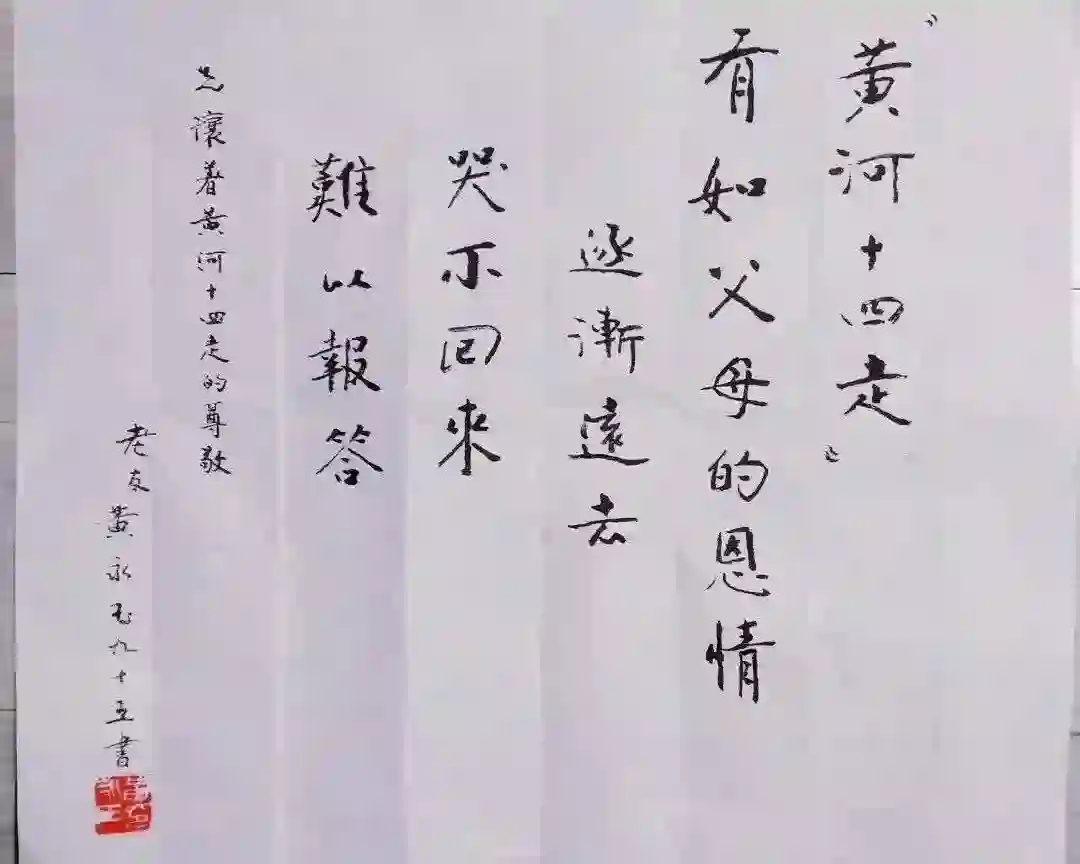 "黃河十四走"
有如父母的恩情
逐漸遠去
哭不回來
難以報答
懷着黃河十四走的尊敬
老友
黃永玉九十五書